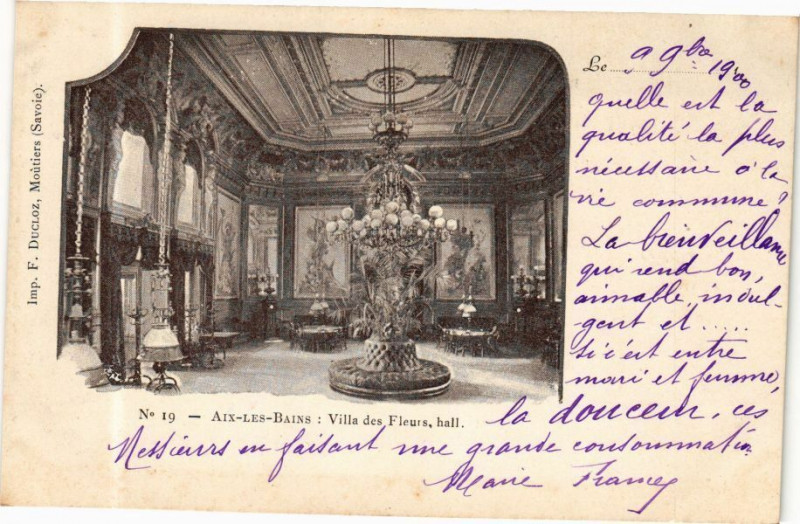 Imp. F. DUCLOZ, Moûtiers (Savoie).
Le 9 9bre 1900
quelle est la
qualité la plus
nécessaire à la
vie commune?
La bienveillance
qui rend bon,
aimable, indul-
gent et .....
si c'est entre
mari et femme,
la douceur, ces
Messieurs en faisant une grande consommation
Marie
No 19 — AIX-LES-BAINS : Villa des Fleurs, hall.